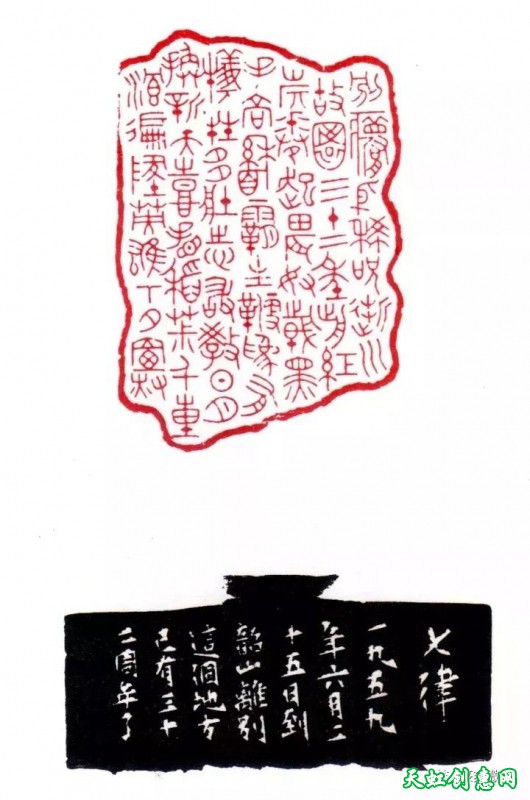 别夢依稀咒逝川
故園三十二年前紅
旗卷起農奴戟黑
手高縣霸主鞭為有
犧牲多壯志敢教日月
換新天喜看稻菽千重
浪遍地英雄下夕煙
七律
一九五九
年六月二
十五日到
韶山離別
這個地方
已有三十
二周年了
天虹创意网